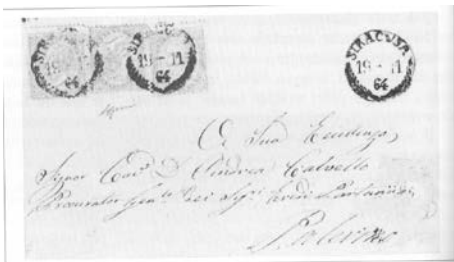 SIRACUSA
19 - 11
64
SIRACUSA
19 - 11
64
SIRACUSA
19 - 11
64
A Sua Eccellenza
Signor Cav.r D. Andrea Calvello
Procurator Gen.le dei Sig.ri
Palermo